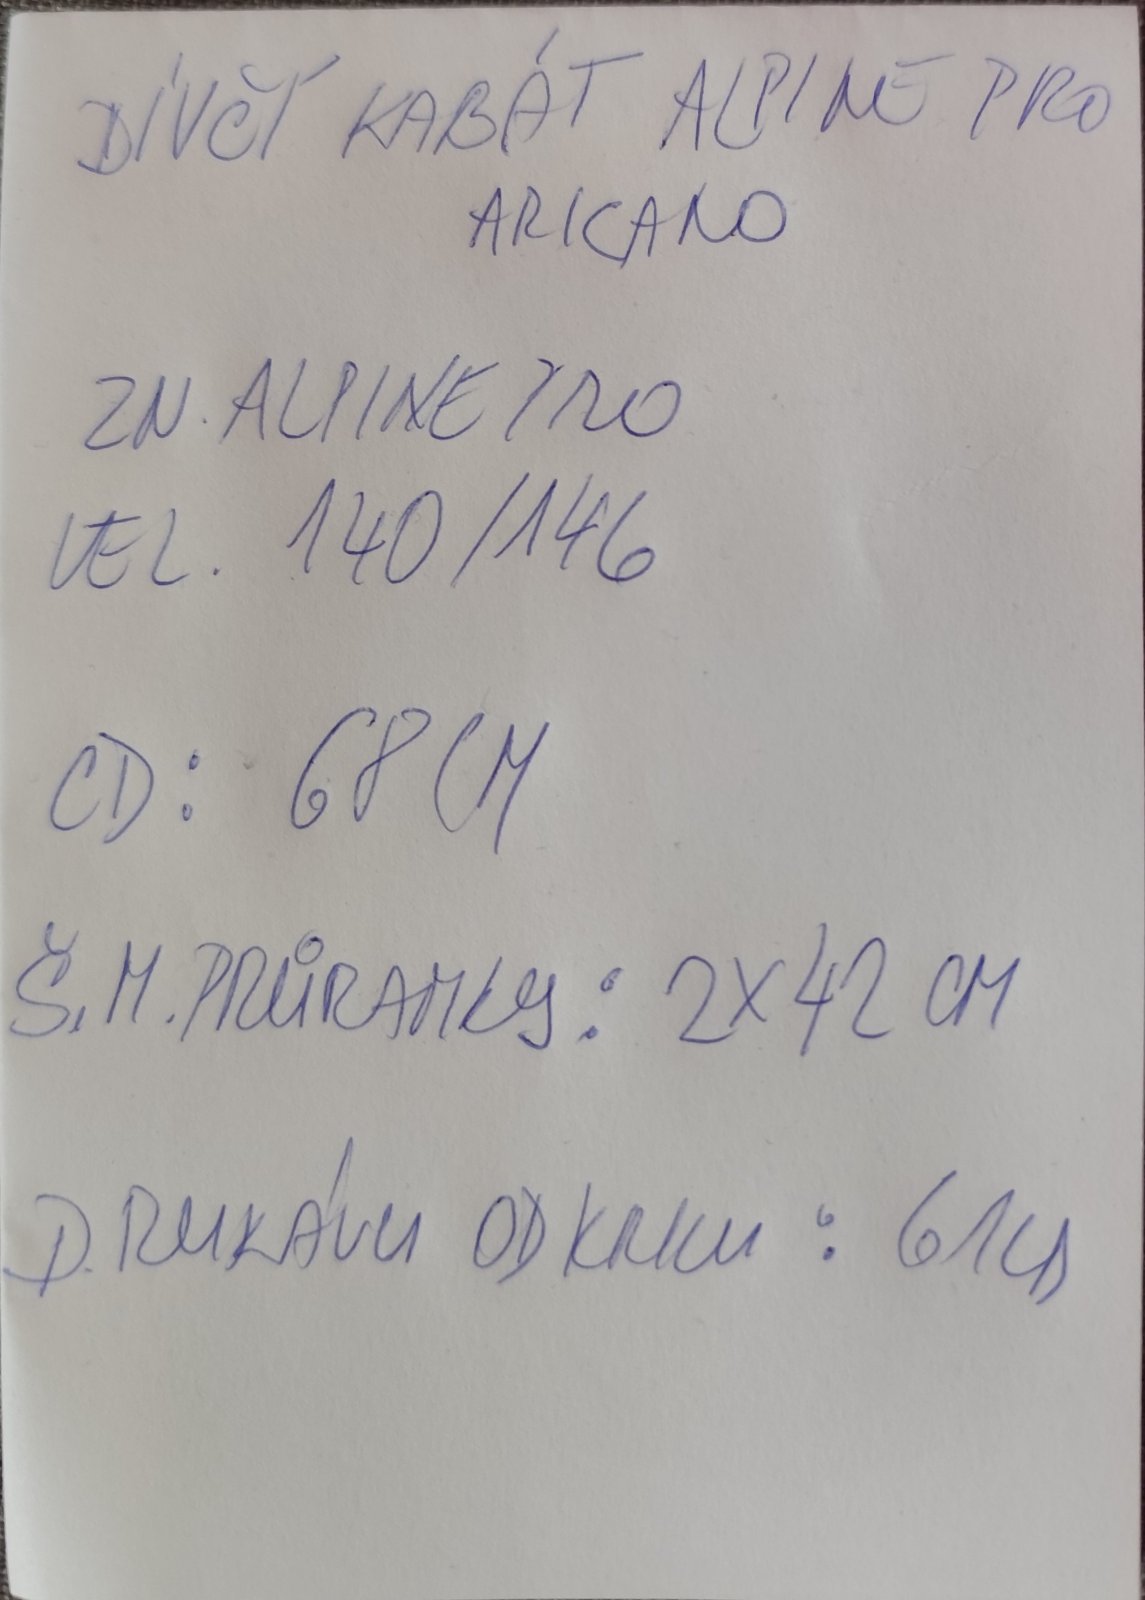 DÍVČÍ KABÁT ALPINE PRO
ARICANO
ZN. ALPINE PRO
VEL. 140/146
CD: 68 CM
Š.M.PRŮRAMKY: 2X42 CM
D.RUKÁVU OD KRKU: 61CM